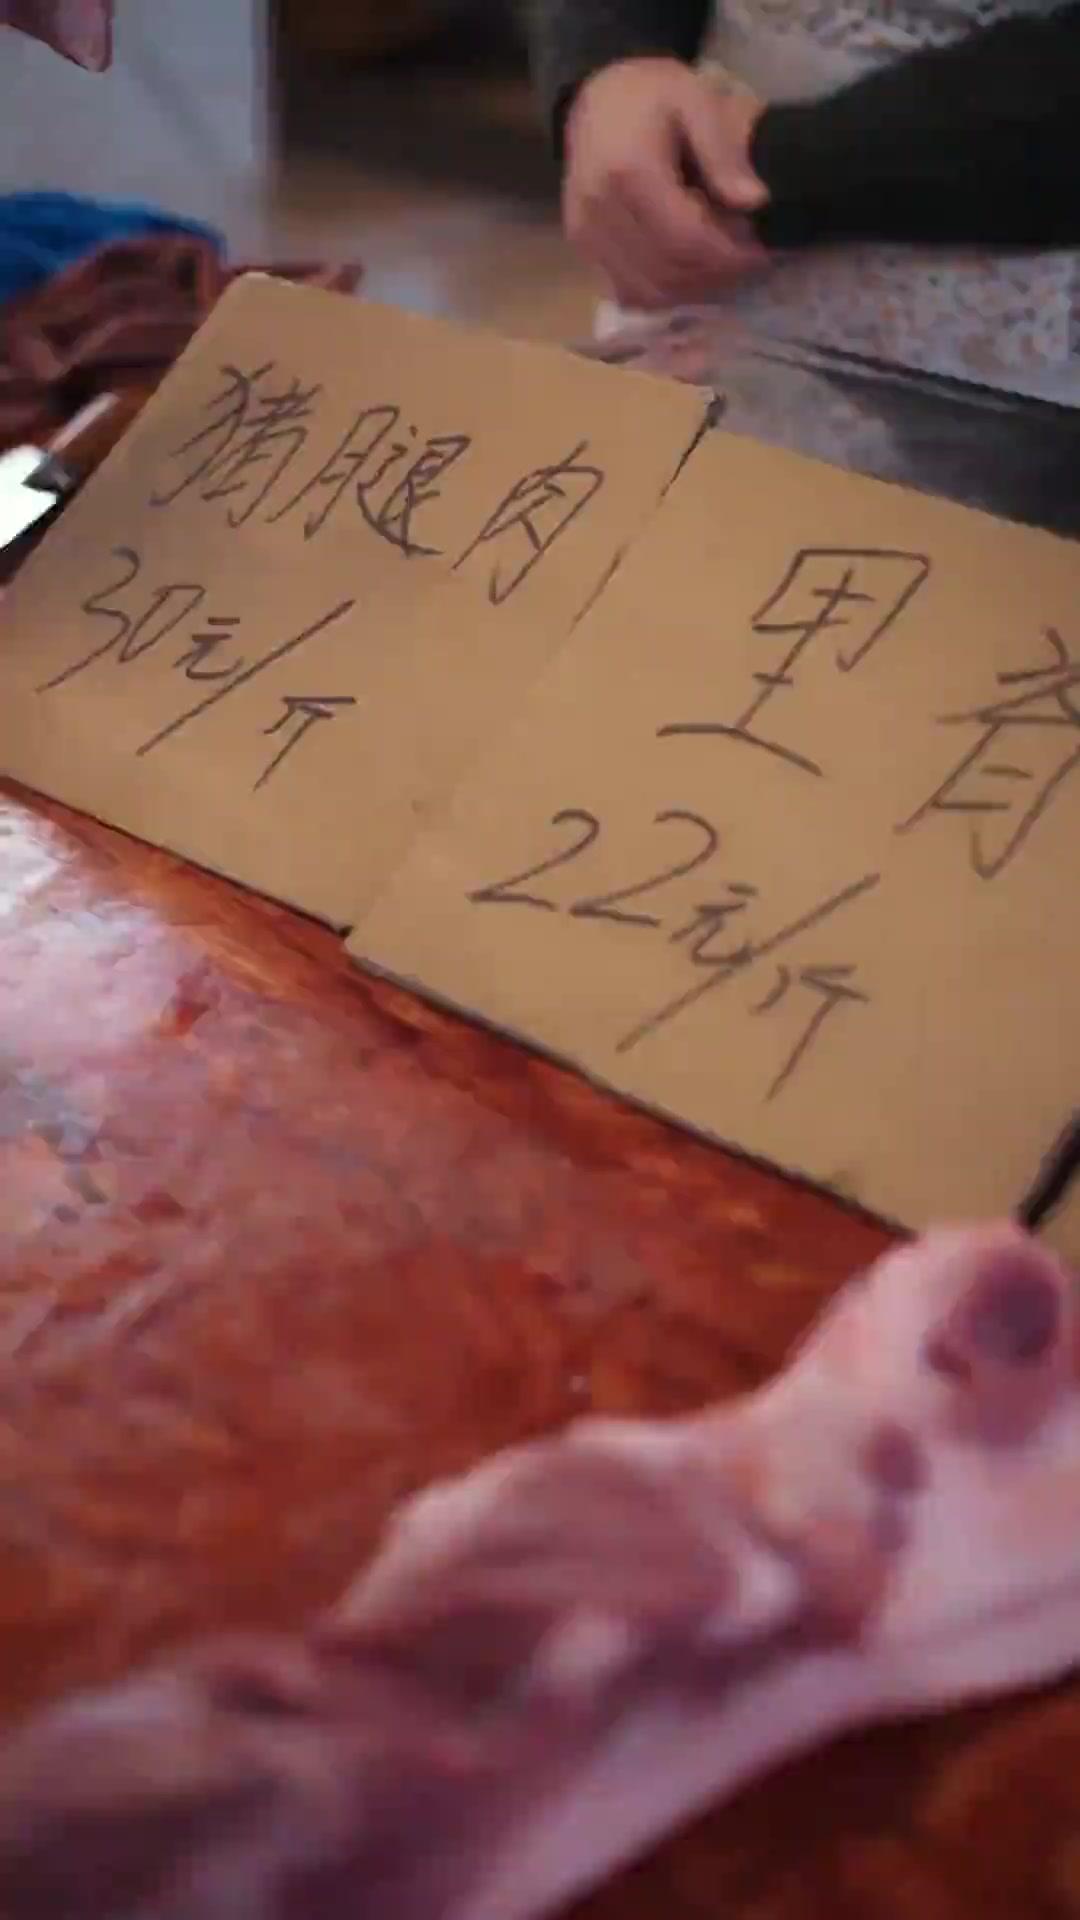 猪腿肉
30元/斤
里脊
22元/斤